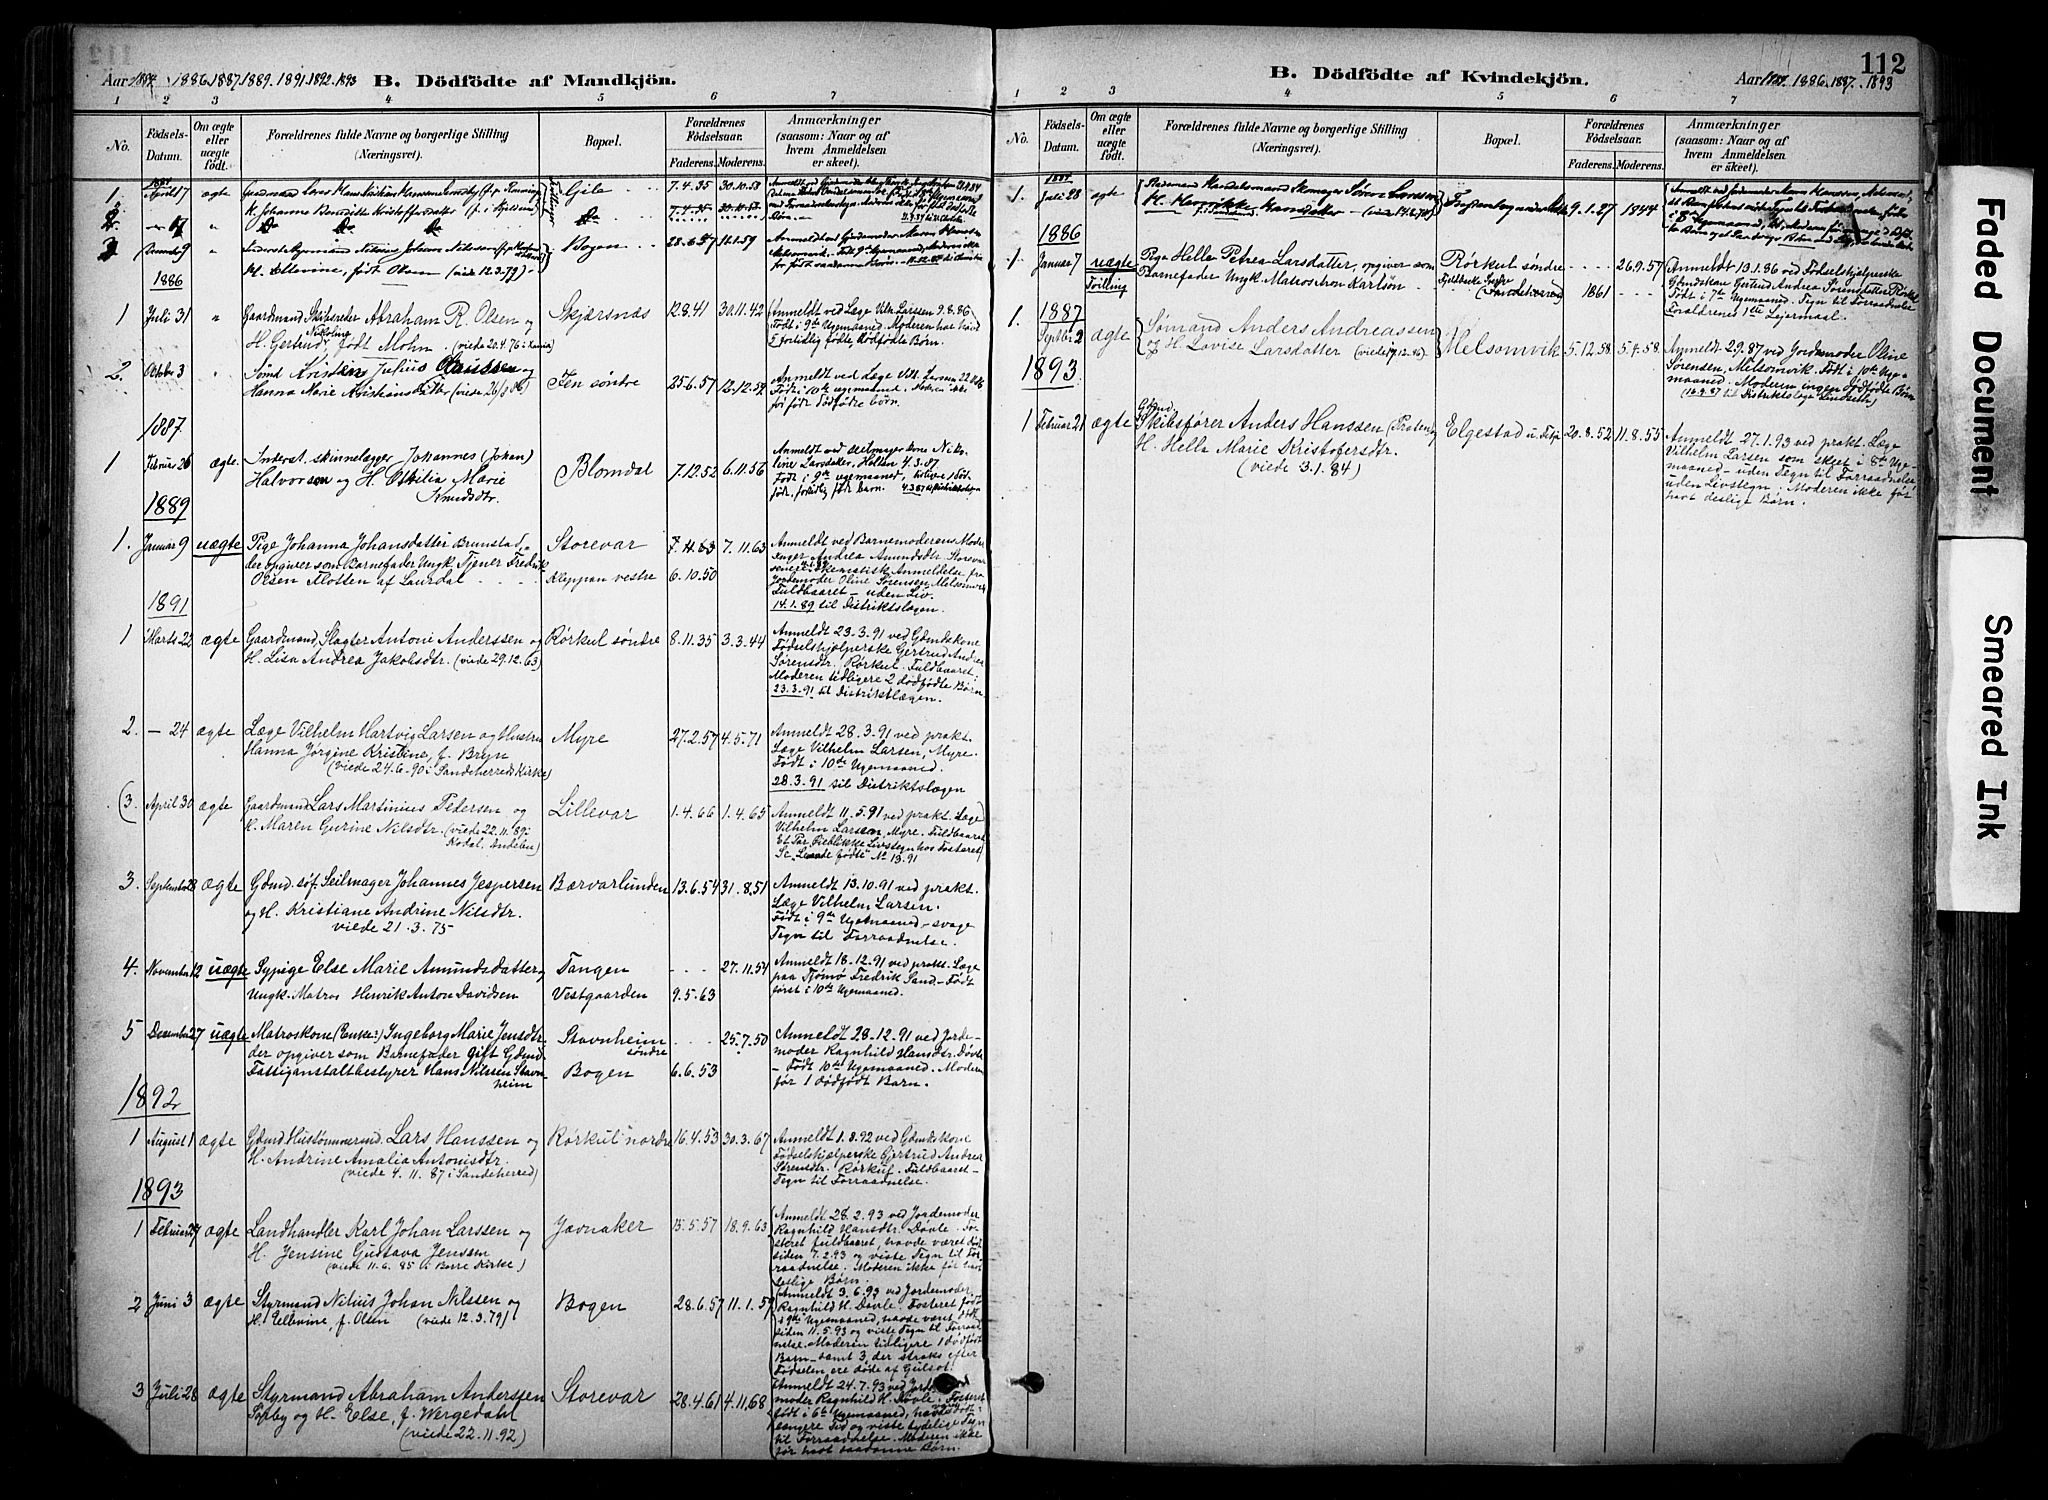 Aar 1884. 1886. 1887. 1889. 1891. 1892. 1893
B. Dödfödte af Mandkjön.
1 2 3 4 5 6 7
No.
Födsels-
Datum.
Om ægte
eller
uægte
født.
Forældrenes fulde Navne og borgerlige Stilling
(Næringsvei).
Bopæl.
Forældrenes
Fødselsaar.
Faderens. Moderens.
Anmærkninger
(saasom: Naar og af
hvem Anmeldelsen
er skeet).
1884
1. April 17 ægte
H. Johanne Benedikte Kristoffersdatter
Gile 7.4.35 30.10.53
2. " 17 " Do Do Do Do 7.4.35 30.10.53
3 9 " H. Ellevine, født Olsen (viede 12.3.79)
Bogen 28.6.57 11.1.59
1886
1 Juli 31 " Gaardmand Skibsreder Abraham R. Olsen og
H. Gertrud Nikoline født Mohn. (viede 20.4.76 i Larvik)
Skjærsnæs 12.8.41 30.11.42
Anmeldt ved Læge Vilh. Larssen 9.8.86
Født i 9de Ugemaaned. Moderen har havd
5 fortidlig fødte, dødfødte Børn.
2. October 3 " Sømd. Kristen Julius Claussen og
Hanna Marie Kristiansdatter (viede 26/9 86)
Fen søndre 25.6.57 12.12.59
Anmeldt ved Læge Vilh. Larsen 22.10.86
Født i 10de ugemaaned. Moderen ikke
før født dødfødte børn.
1887
1 Februar 26 ægte. Inderst. skinnelægger Johannes (Johan)
Halvorsen og H. Othilia Marie
Knudsdtr.
Blomdal 7.12.52 6.11.56
Født i 9de ugemaaned,
1889
1. Januar 9 uægte Pige Johanna Johansdatter Brunstad,
der opgiver som Barnefader Ungk. Tjener Fredrik
Olsen Flotten af Laurdal
Storevar 7.11.63
Kleppan vestre 6.10.50
Anmeldt ved Barnemoderens Moder
Inger Andrea Amundsdtr. Storevar
senere skematisk Anmeldelse fra
Jordemoder Oline Sørensen, Melsomvik
Fuldbaaret - uden Liv.
14.1.89 til Distriktslægen.
1891
1 Marts 22 ægte Gaardmand, Slagter Antoni Anderssen og
H. Lisa Andrea Jakobsdtr. (viede 29.12.63)
Rørkul søndre 8.11.35 3.3.44
Anmeldt 23.3.91 ved Gdmdskone
Fødselshjælperske Gertrud Andrea
Sørensdtr. Rørkul. Fuldbaaret.
Moderen tidligere 2 dødfødte Børn.
23.3.91 til Distriktlægen.
2. - 24 ægte Læge Vilhelm Hartvig Larsen og Hustru
Hanna Jørgine Kristine, f. Bryn
(viede 24.6.90 i Sandeherreds Kirke)
Myre 27.2.57 4.5.71
Anmeldt 28.3.91 ved prakt.
Læge Vilhelm Larsen, Myre.
Født i 10de Ugemaaned.
28.3.91 til Distriktslægen
(3. April 30 ægte Gaardmand Lars Martinius Pedersen og
H. Maren Gurine Nilsdtr. (viede 22.11.89 i
Kodal. Andebu)
Lillevar 1.4.66 1.4.65
Anmeldt 11.5.91 ved prakt. Læge
Vilhelm Larsen, Myre. Fuldbaaret
Et Par Øieblikke Livstegn hos Fosteret)
Se „Levende fødte" No 13.91
3. September 28 ægte Gdmd. søf. Seilmager Johannes Jespersen
og H. Kristiane Andrine Nilsdtr.
viede 21.3.75
Bærvarlunden 13.6.54 31.8.51
Anmeldt 13.10.91 ved prakt.
Læge Vilhelm Larsen.
Født i 9de Ugemaaned - svage
Tegn til Forraadnelse.
4. November 12 uægte Sypige Else Marie Amundsdatter og
Ungk. Matros Henrik Anton Davidsen
Tangen 27.11.54
Vestgaarden 9.5.63
Anmeldt 18.12.91 ved prakt. Læge
paa Tjømø Fredrik Sand. - Født
først i 10de Ugemaaned.
5 December 27 uægte Matroskone (Enke?) Ingeborg Marie Jensdtr.
der opgiver som Barnefader gift Gdmd.
Fattiganstaltbestyrer Hans Nilssen Stavn-
heim
Stavnheim
søndre 25.7.50
Bogen 6.6.53
Anmeldt 28.12.91 ved Jorde-
moder Ragnhild Hansdtr. Døvle
- Født 10de Ugemaaned. Moderen
før 1 dødfødt Barn.
1892
1 August 1 ægte Gdmd. Hustømmermd. Lars Hanssen og
H. Andrine Amalia Antonisdtr.
(viede 4.11.87 i Sandeherred)
Rørkul nordre 16.4.53 30.3.67
Anmeldt 1.8.92 ved Gdmdskone
Fødselshjælperske Gjertrud Andrea
Sørensdtr. Rørkul. Fuldbaaret -
Tegn til Forraadnelse.
1893
1 Februar 27 ægte Landhandler Karl Johan Larssen og
H. Jensine Gustava Jenssen
(viede 11.6.85 i Borre Kirke)
Jøvnaker 15.5.57 18.9.63
Anmeldt 28.2.93 ved Jordemoder
Ragnhild Hansdtr. Døvle. Fo-
steret fuldbaaret, havde været død
siden 7.2.93 og viste Tegn til For-
raadnelse. Moderen ikke før havt
deslige Børn.
2 Juni 3 ægte Styrmand Nilius Johan Nilssen og
H. Ellevine, f. Olsen (viede 12.3.79)
Bogen 28.6.57 11.1.59
Anmeldt 3.6.93 ved Jordemoder
Ragnhild H. Døvle. Fosteret født
i 9de Ugemaaned, havde været død
siden 11.5.93 og viste Tegn til Forraad-
nelse. Moderen tidligere 1 dødfødt
Barn - samt 3, der straks efter
Fødselen ere døde af Gulsot.
3 Juli 28 ægte Styrmand Abraham Anderssen
Sæby og H. Else, f. Wergedahl
(viede 22.11.92)
Storevar 28.4.61 4.11.68
Anmeldt 24.7.93 ved Jorde-
moder Ragnhild H. Døvle. Fosteret
født i 6te Ugemaaned, havde været død i
længere Tid og viste tydelige Tegn
til Forraadnelse. Moderen ikke
før havt saadanne Børn.
112
B. Dödfödte af Kvindekjön.
Aar 1884. 1886. 1887. 1893
1 2 3 4 5 6 7
No.
Födsels-
Datum.
Om ægte
eller
uægte
födt.
Forældrenes fulde Navne og borgerlige Stilling
(Næringsvei).
Bopæl.
Forældrenes
Fødselsaar.
Faderens. Moderens.
Anmærkninger
(saasom: Naar og af
hvem Anmeldelsen
er skeet).
1884
1. Juli 28 ægte
9.1.27 1844
1886
1. Januar 7 uægte
Tvilling
Pige Helle Petrea Larsdatter, opgiver som
Barnefader Ungk. Matros Aron Karlson
Rørkul søndre 26.9.57
1861
Anmeldt 13.1.86 ved Fødselshjelperske
Gdmdskone Gertrud Andrea Sørensdatter Rørkul
Født i 7de Ugemaaned. Tegn til Forraadnelse
Forældrenes 1ste Leiermaal.
1887
1. Septbr 2 ægte Sømand Anders Andreassen
og H. Lovise Larsdatter
Melsomvik 5.12.58 5.4.58.
Anmeldt 2.9.87 ved Jordemoder Oline
Sørensen, Melsomvik. Født i 10de Uge-
maaned. Moderen ingen dødfødte Børn
(16.9.87 til Distriktslæge Lindseth)
1893
1 Februar 21 ægte Gdmd.
Skibsfører Anders Hanssen
H. Hella Marie Kristofersdtr.
(viede 3.1.84)
Elgestad 20.8.52 11.8.55
Anmeldt 27.1.93 ved prakt. Læge
Vilhelm Larsen som skeet i 8de Uge-
maaned - uden Tegn til Forraadnelse,
uden Livstegn. Moderen ikke før
havt deslige Børn.
Faded Document
Smeared Ink